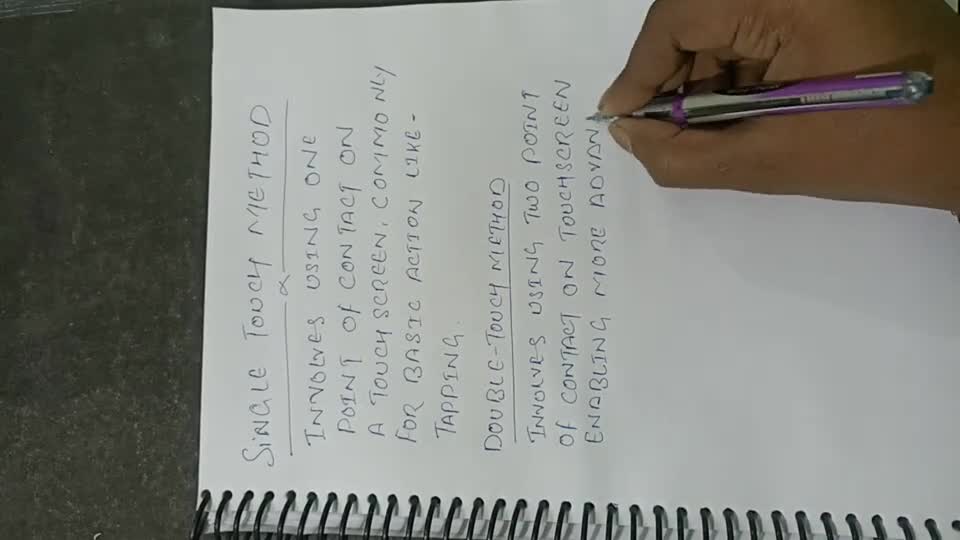 SiNGLE TOUCH METHOD
INVOLVES USING ONE
POINT OF CONTACT ON
A TOUCH SCREEN, COMMONLY
FOR BASIC ACTION LIKE-
TAPPING.
DOUBLE-TOUCH METHOD
INVOLVES USING TWO POINT
OF CONTACT ON TOUCHSCREEN
ENABLING MORE ADVAN